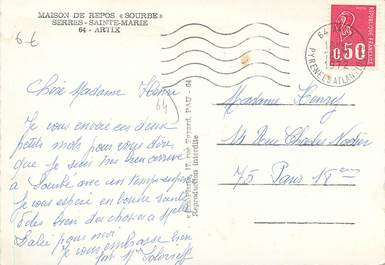 MAISON DE REPOS « SOURBÉ »
SERRES-SAINTE-MARIE
64 - ARTIX
6 €
Chère Madame Henri
64
Je vous envoie ces deux
petits mots pour vous dire
que je suis bien arrivé
à Sourbé avec un temps superbe
Je vous espère en bonne santé
bien
Salée pour moi
Je vous embrasse bien
fort
PAU - 64
Reproduction interdite
64
1972
PYRENEES ATLANT
REPUBLIQUE FRANÇAISE
0,50
POSTES
Madame Henry
14 Rue Charles Nodier
75 Paris 18 eme